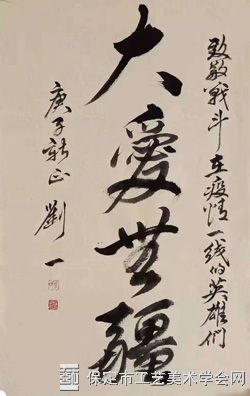 致敬戰斗在疫情一线的英雄们
大愛無疆
庚子新正 劉一
保定市工艺美术学会网